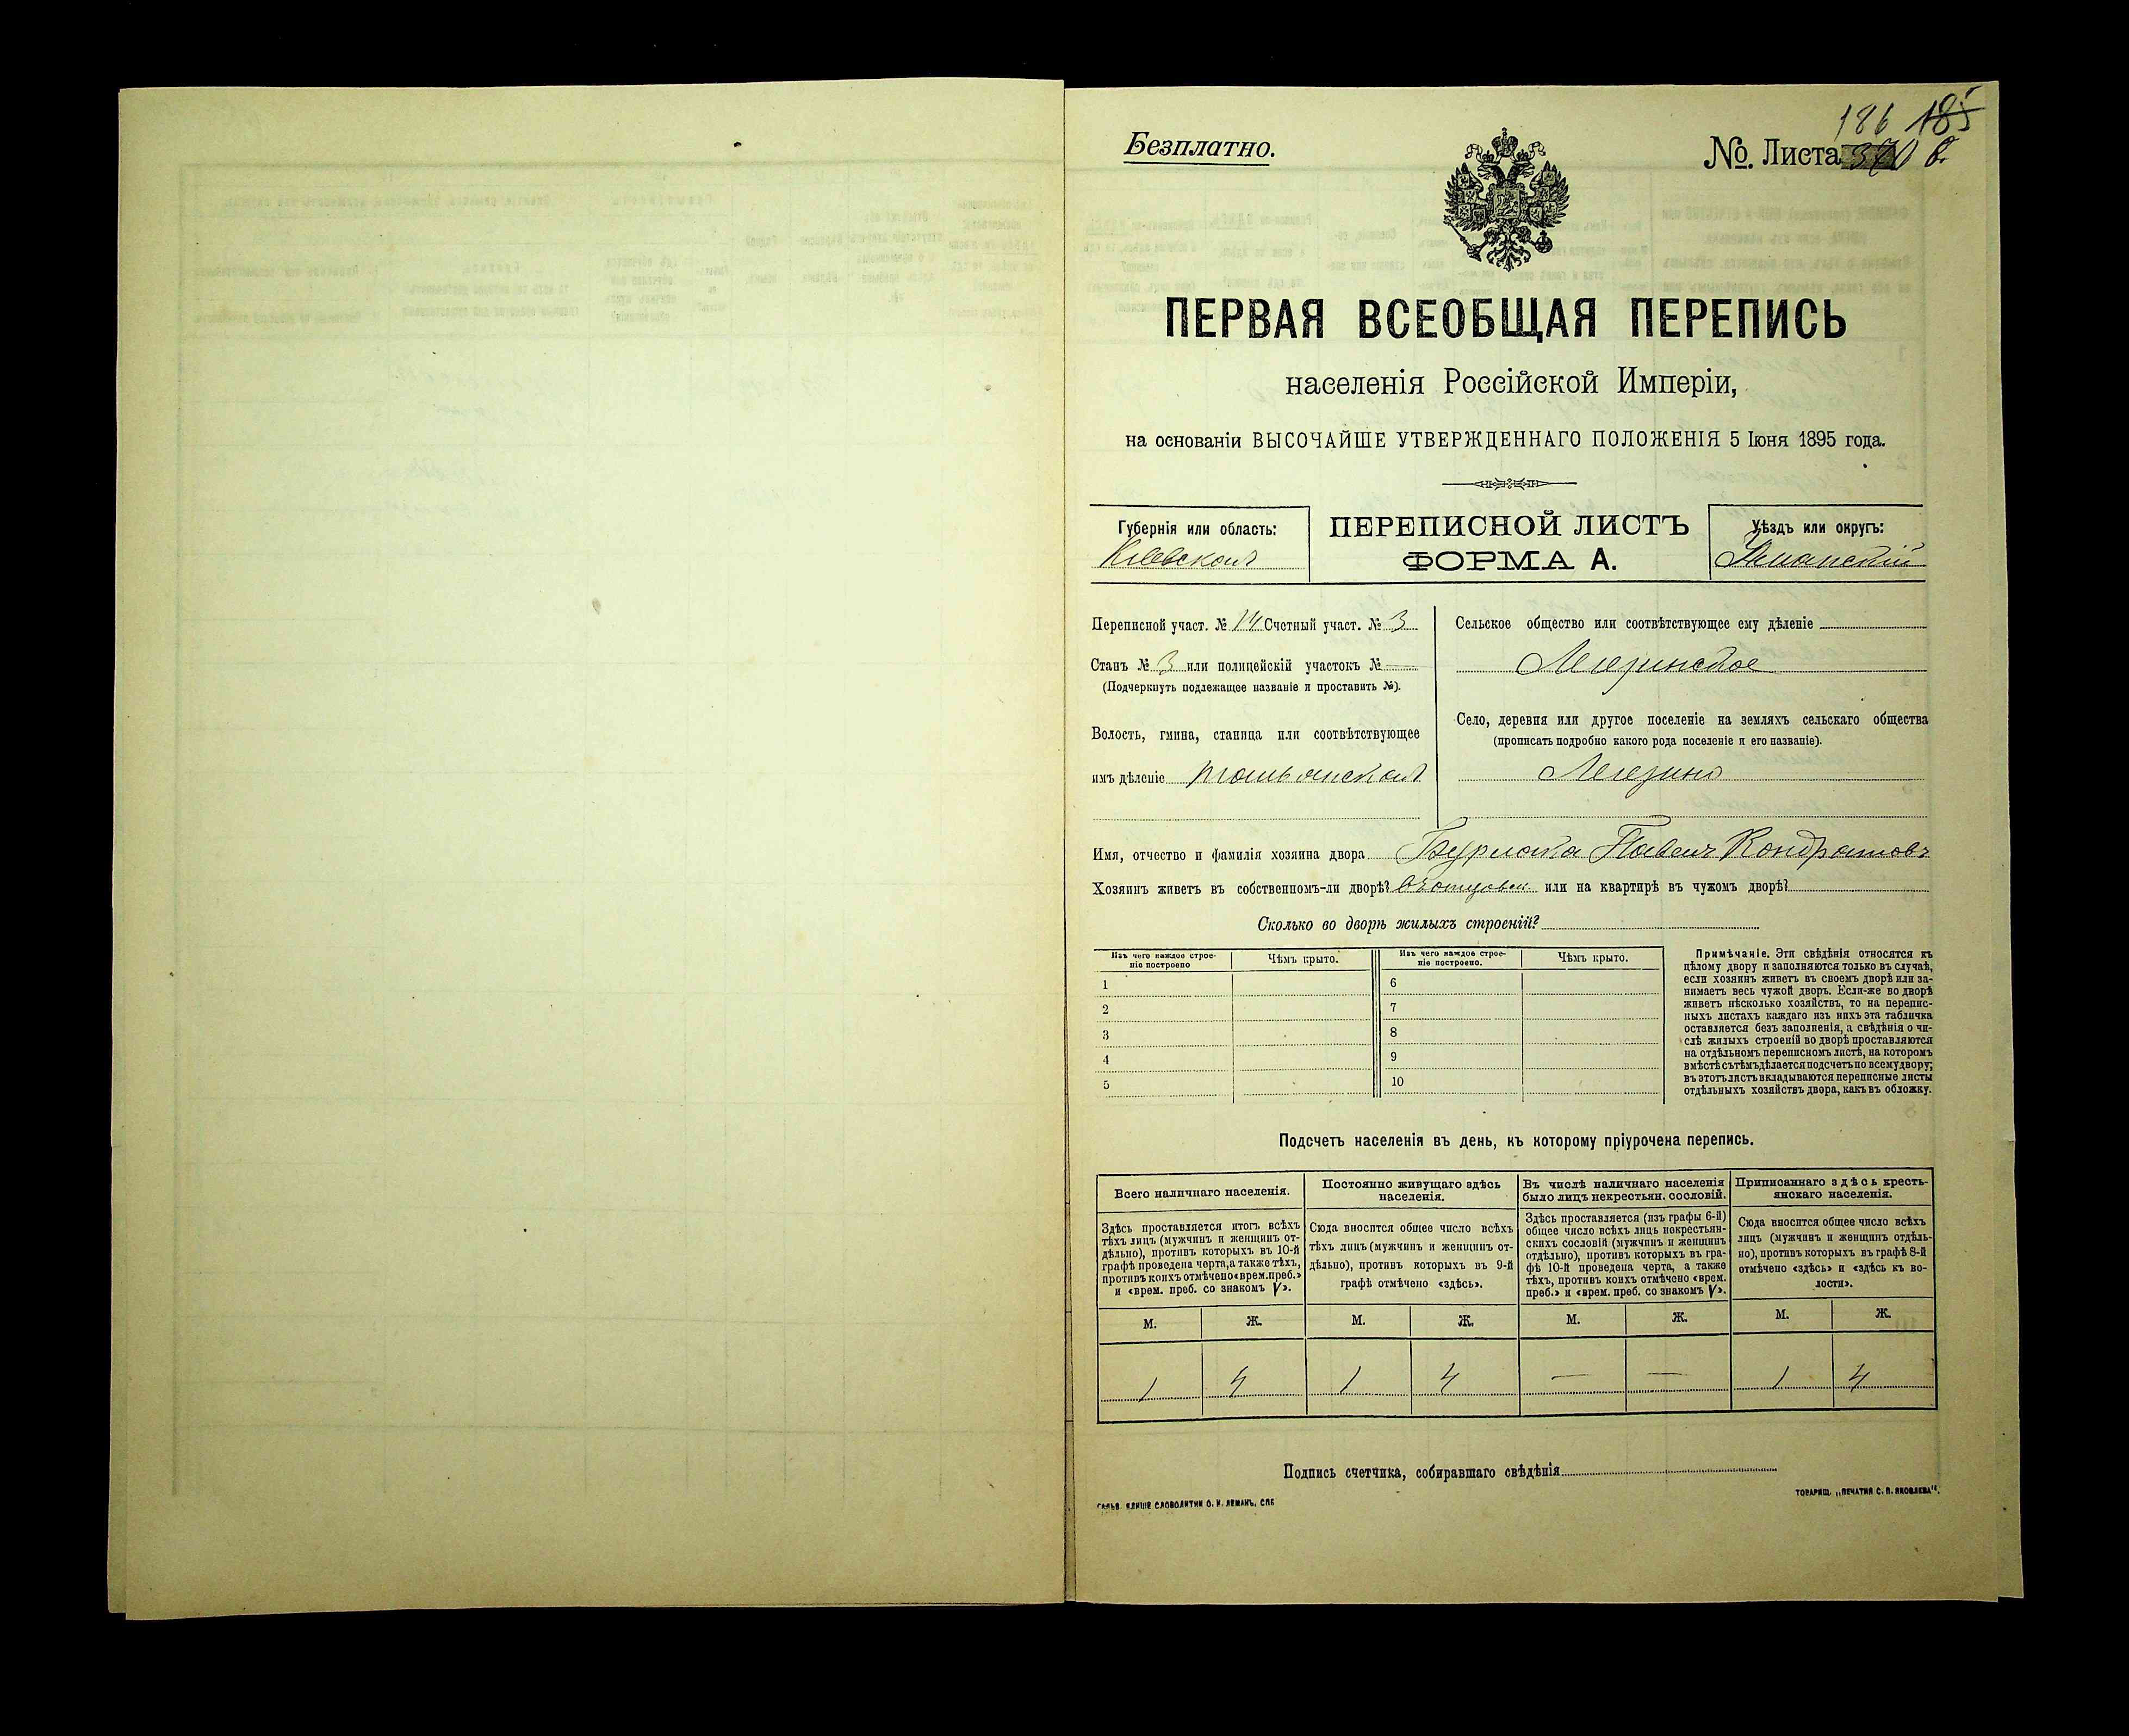 186 185
Безплатно.
№. Листа
ПЕРВАЯ ВСЕОБЩАЯ ПЕРЕПИСЬ
населенія Россійской Имперіи,
на основаніи ВЫСОЧАЙШЕ УТВЕРЖДЕННАГО ПОЛОЖЕНІЯ 5 Іюня 1895 года.
Губернія или область:
Кіевская
ПЕРЕПИСНОЙ ЛИСТЪ
ФОРМА А.
Уѣздъ или округъ:
Уманскій
Переписной участ. № 14 Счетный участ. № 3
Станъ № 3 или полицейскій участокъ № —
(Подчеркнуть подлежащее названіе и проставить №).
Волость, гмина, станица или соотвѣтствующее
имъ дѣленіе Тальянская
Сельское общество или соотвѣтствующее ему дѣленіе
Легезинское
Село, деревня или другое поселеніе на земляхъ сельскаго общества
(прописать подробно какого рода поселеніе и его названіе).
Легезино
Имя, отчество и фамилія хозяина двора Павелъ Кондратовъ
Хозяинъ живетъ въ собственномъ-ли дворѣ? или на квартирѣ въ чужомъ дворѣ?
Сколько во дворѣ жилыхъ строеній?
Изъ чего каждое строе-
ніе построено
Чѣмъ крыто.
Изъ чего каждое строе-
ніе построено.
Чѣмъ крыто.
1 6
2 7
3 8
4 9
5 10
Примѣчаніе. Эти свѣдѣнія относятся къ
цѣлому двору и заполняются только въ случаѣ,
если хозяинъ живетъ въ своемъ дворѣ или за-
нимаетъ весь чужой дворъ. Если-же во дворѣ
живетъ нѣсколько хозяйствъ, то на перепис-
ныхъ листахъ каждаго изъ нихъ эта табличка
оставляется безъ заполненія, а свѣдѣнія о чи-
слѣ жилыхъ строеній во дворѣ проставляются
на отдѣльномъ переписномъ листѣ, на которомъ
вмѣстѣ съ тѣмъ дѣлается подсчетъ по всему двору;
въ этотъ листъ вкладываются переписные листы
отдѣльныхъ хозяйствъ двора, какъ въ обложку.
Подсчетъ населенія въ день, къ которому пріурочена перепись.
Всего наличнаго населенія.
Постоянно живущаго здѣсь
населенія.
Въ числѣ наличнаго населенія
было лицъ некрестьян. сословій.
Приписаннаго здѣсь кресть-
янскаго населенія.
Здѣсь проставляется итогъ всѣхъ
тѣхъ лицъ (мужчинъ и женщинъ от-
дѣльно), противъ которыхъ въ 10-й
графѣ проведена черта, а также тѣхъ,
противъ коихъ отмѣчено «врем. преб.»
и «врем. преб. со знакомъ V».
Сюда вносится общее число всѣхъ
тѣхъ лицъ (мужчинъ и женщинъ от-
дѣльно), противъ которыхъ въ 9-й
графѣ отмѣчено «здѣсь».
Здѣсь проставляется (изъ графы 6-й)
общее число всѣхъ лицъ некрестьян-
скихъ сословій (мужчинъ и женщинъ
отдѣльно), противъ которыхъ въ гра-
фѣ 10-й проведена черта, а также
тѣхъ, противъ коихъ отмѣчено «врем.
преб.» и «врем. преб. со знакомъ V».
Сюда вносится общее число всѣхъ
лицъ (мужчинъ и женщинъ отдѣль-
но), противъ которыхъ въ графѣ 8-й
отмѣчено «здѣсь» и «здѣсь къ во-
лости».
М. Ж. М. Ж. М. Ж. М. Ж.
1 4 1 4 — — 1 4
Подпись счетчика, собиравшаго свѣдѣнія
ГАЛЬВ. КЛИШЕ СЛОВОЛИТНИ О. И. ЛЕМАНЪ, СПБ
ТОВАРИЩ. „ПЕЧАТНЯ С. П. ЯКОВЛЕВА“.